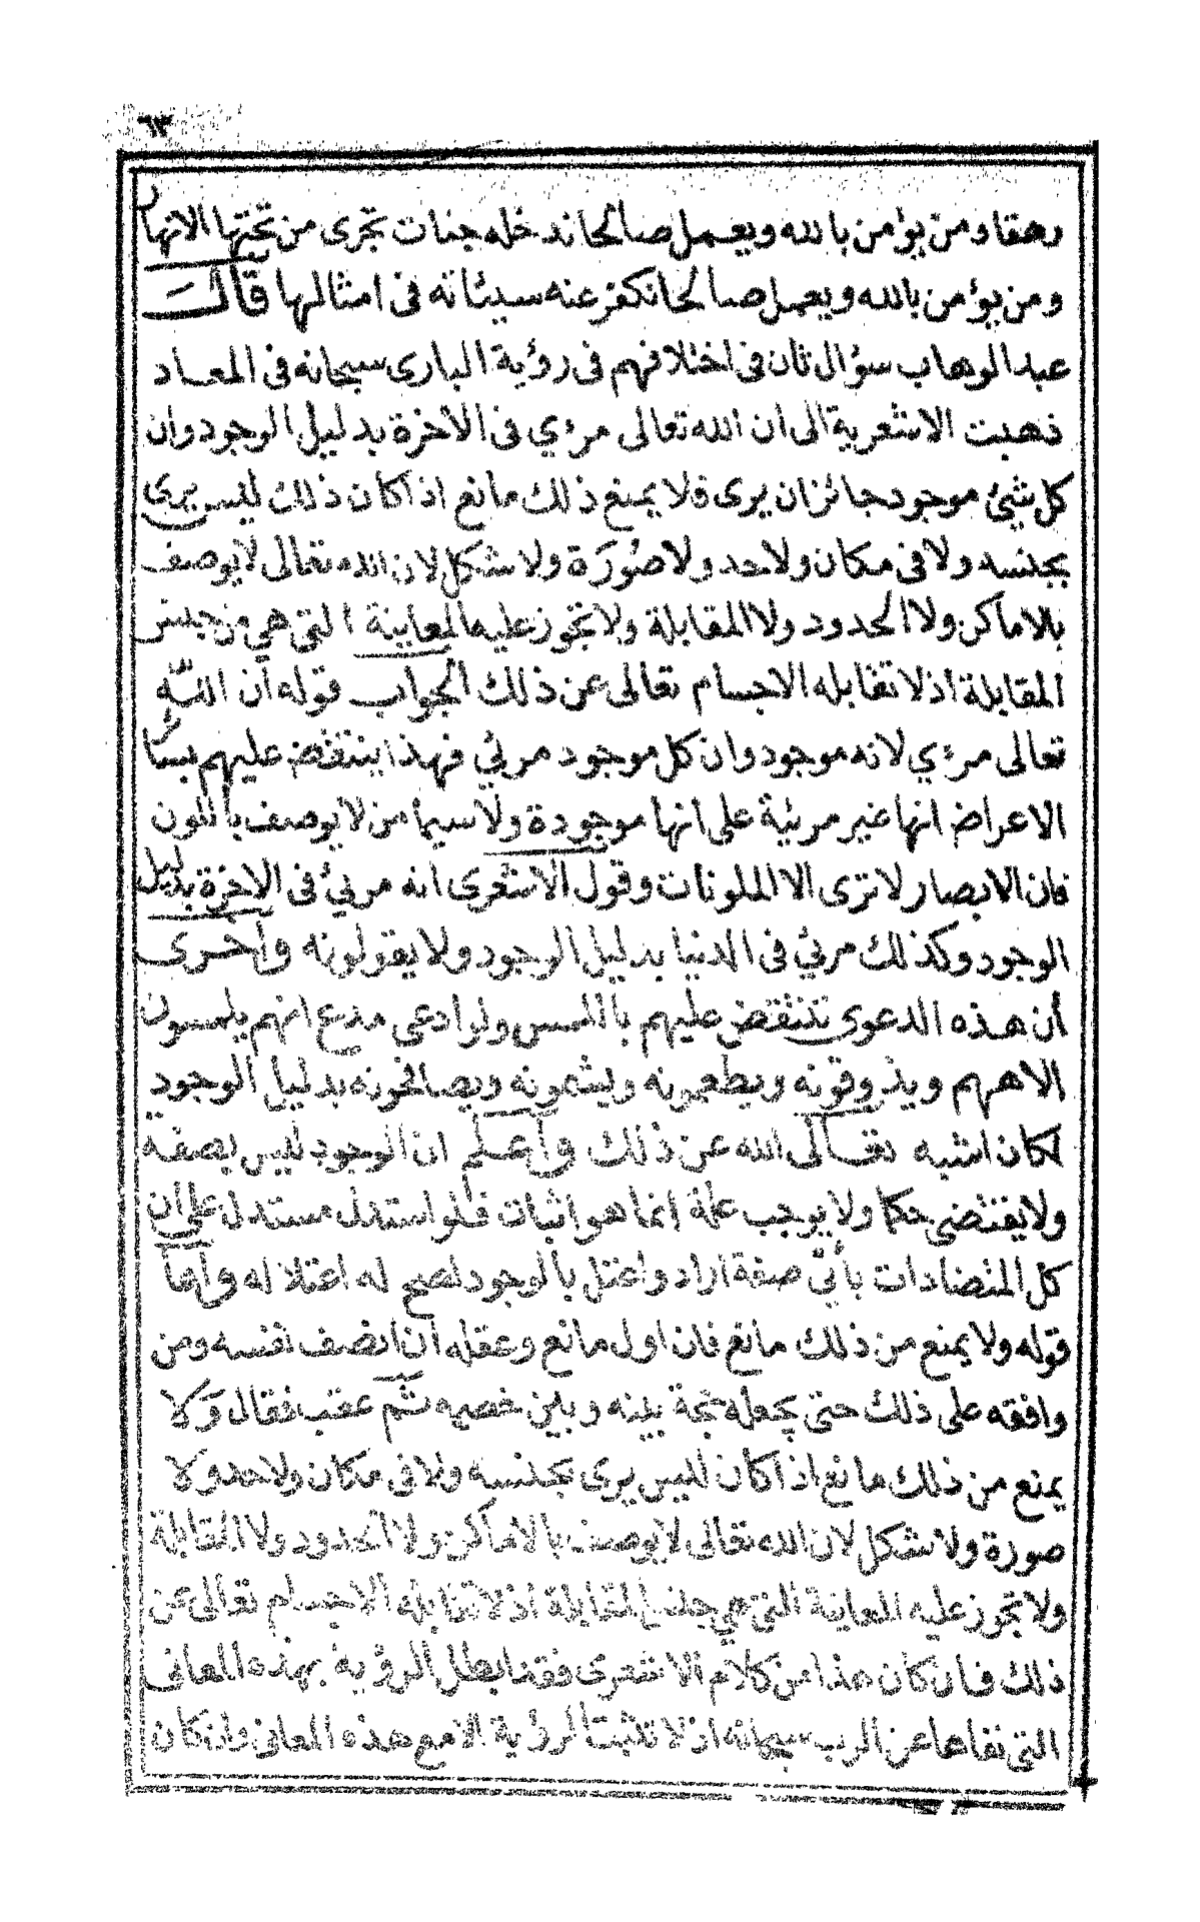 ٦٣
رهقا ومن يؤمن بالله ويعمل صالحا ندخله جنات تجرى من تحتها الانهار
ومن يؤمن بالله ويعمل صالحا نكفر عنه سيئاته فى امثالها قالـــ
عبد الوهاب سؤال ثان فى اختلافهم فى رؤية البارى سبحانه فى المعاد
ذهبت الاشعرية الى ان الله تعالى مرءي فى الاخرة بدليل الوجود وان
كل شئ موجود جائز ان يرى ولا يمنع ذلك مانع اذا كان ذلك ليس يرى
بجنسه ولا فى مكان ولا حد ولا صُورَة ولا شكل لان الله تعالى لا يوصف
بالاماكن ولا الحدود ولا المقابلة ولا تجوز عليه المعاينة التى هي من جنس
المقابلة اذ لا تقابله الاجسام تعالى عن ذلك الجواب قوله ان اللّه
تعالى مرءي لانه موجود وان كل موجود مرئي فهذا ينتقض عليهم بسائر
الاعراض انها غير مرئية على انها موجودة ولا سيما من لا يوصف باللون
فان الابصار لا ترى الا الملونات وقول الاشعرى انه مرئي فى الاخرة بدليل
الوجود وكذلك مرئي فى الدنيا بدليل الوجود ولا يقولونه وأخرى
أن هذه الدعوى تنتقض عليهم باللمس ولو ادعى مدع انهم يلمسون
الاههم ويذوقونه ويطعمونه ويشمونه ويصافحونه بدليل الوجود
لكان اشبه تعالى الله عن ذلك وأعلم ان الوجود ليس بصفة
ولا يقتضى حكما ولا يوجب علة إنما هو اثبات فلو استدل مستدل على ان
كل المتضادات بأيّ صفة اراد واعتل بالوجود لصح له اعتلاله وأما
قوله ولا يمنع من ذلك مانع فان اول مانع وعقله ان انصف نفسه ومن
وافقه على ذلك حتى يجعله حجة بينه وبين خصمه ثم عقب فقال وَلا
يمنع من ذلك مانع اذا كان ليس يرى بجنسه ولا فى مكان ولا حد ولا
صورة ولا شكل لان الله تعالى لا يوصف بالاماكن ولا الحدود ولا المقابلة
ولا تجوز عليه المعاينة التى هي جنس المقابلة اذ لا تقابله الاجسام تعالى عن
ذلك فان كان هذا من كلام الاشعرى فقد ابطل الرؤية بهذه المعانى
التى نفاها عن الرب سبحانه اذ لا تثبت الرؤية الا مع هذه المعانى وان كان